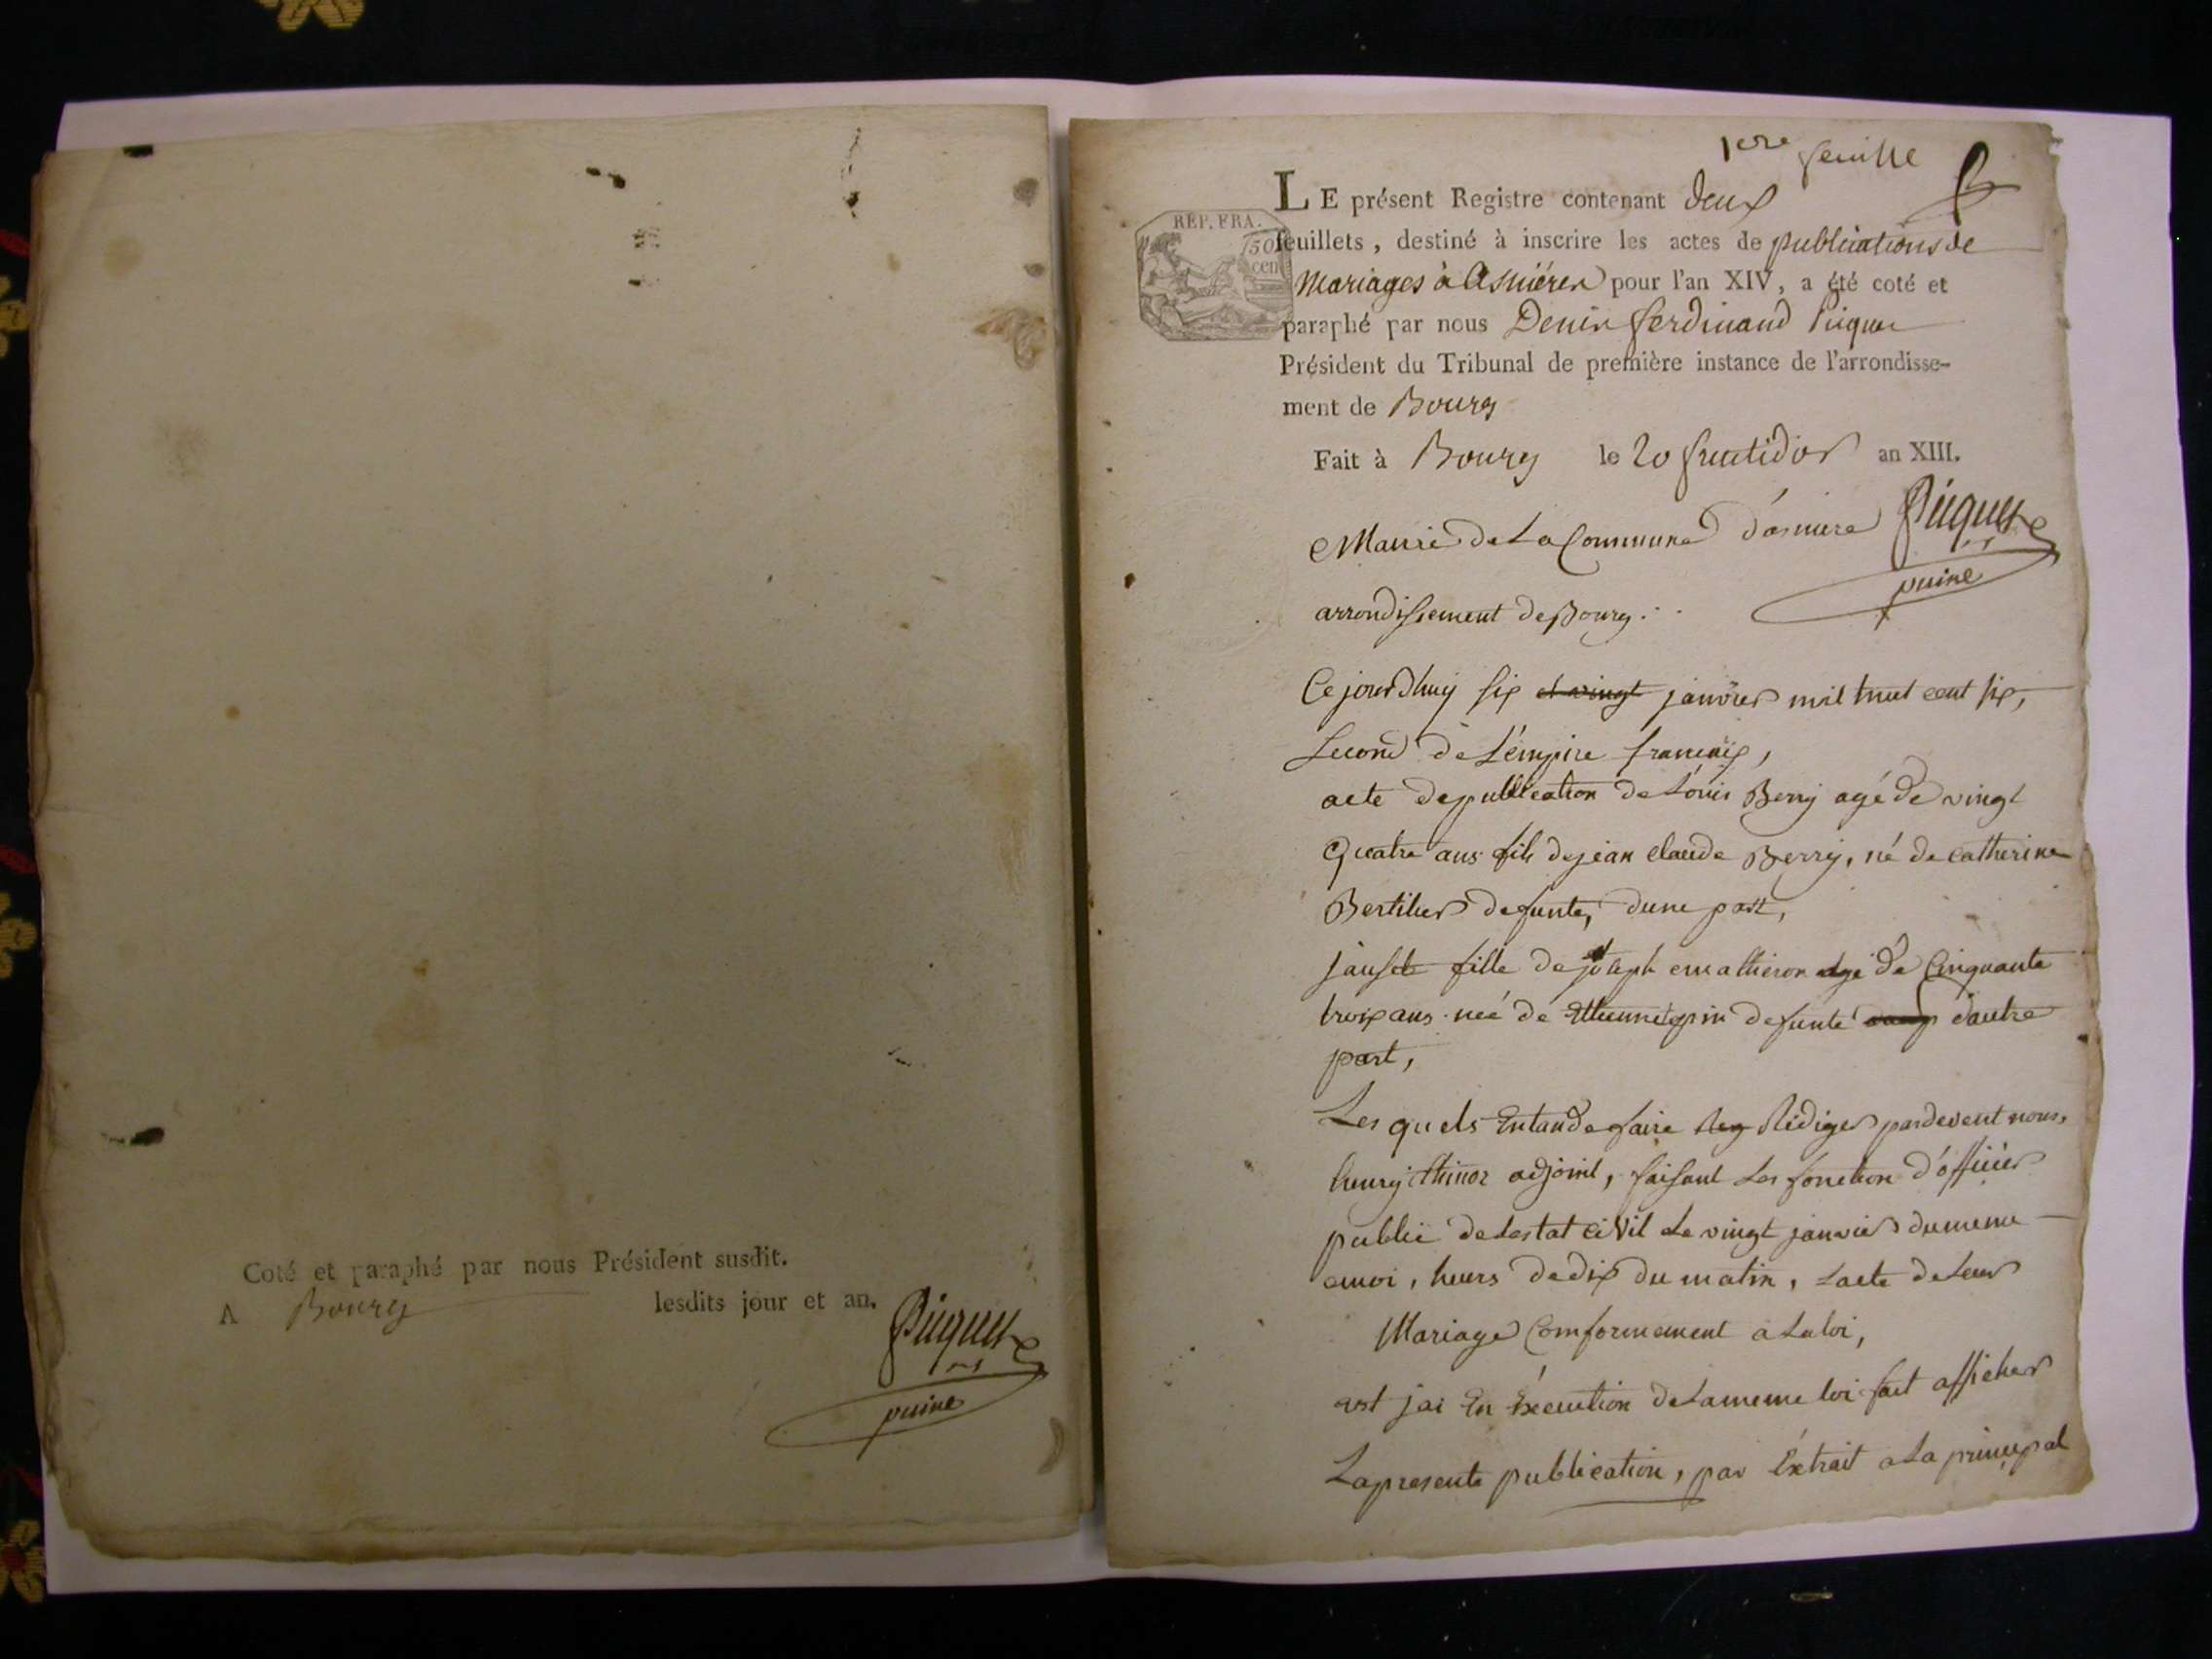 Coté et paraphé par nous Président susdit.
A Bourg lesdits jour et an.
Picquet
puiné
1ere feuille
LE présent Registre contenant deux
REP. FRA.
50
cen
feuillets, destiné à inscrire les actes de publications de
Mariages à Asnières pour l'an XIV, a été coté et
paraphé par nous Denis ferdinand Picquet
Président du Tribunal de première instance de l'arrondisse-
ment de Bourg
Fait à Bourg le 20 fructidor an XIII.
Picquet
puiné
Mairie de La Commune d'asniere
arrondissement de Bourg.
Ce jourdhuy six et vingt janvier mil huit cent six,
second de L'émpire francaix,
acte de publication de Louis Berry agé de vingt
quatre ans fils de jean claude Berry, né de catherine
Bertilier defunte, dune part,
fille de joseph agé de Cinquante
troix ans née de defunte d'autre
part,
Les quels Entande faire Rédiger pardevent nous,
henry adjoint, faisant Les fonction d'officier
public de Lestat civil Le vingt janvier du meme
moi, heurs de dix du matin, Lacte de Leur
Mariage Comformement a La loi,
est jai En Éxecution de La meme loi fait afficher
La presente publication, par Éxtrait a La principal